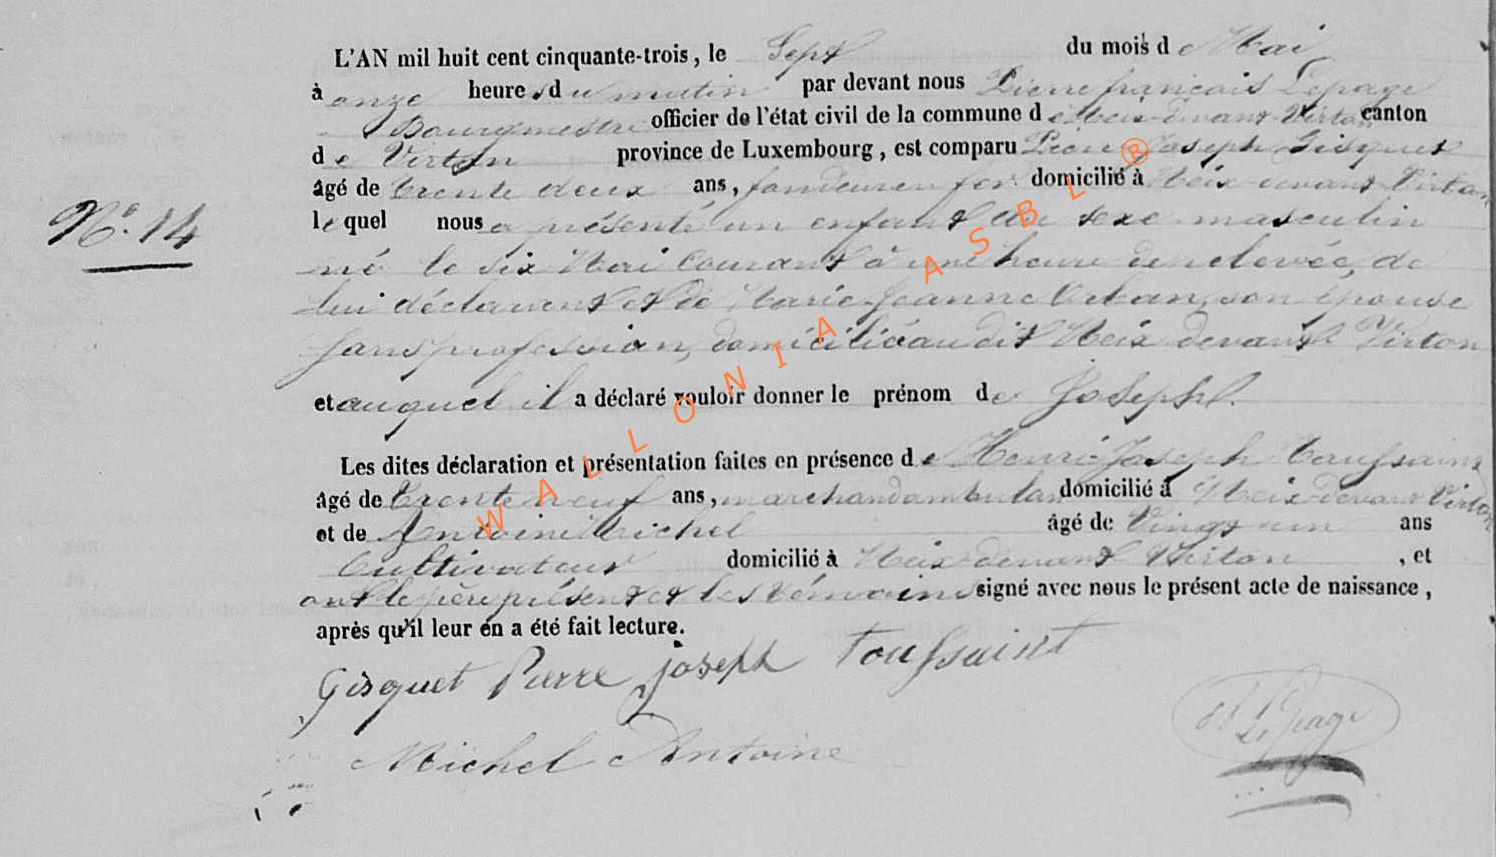 L'AN mil huit cent cinquante-trois, le Sept du mois de Mai
à onze heures du matin par devant nous Pierre françois Lepage
Bourgmestre officier de l'état civil de la commune de Meix-devant-Virton canton
de Virton province de Luxembourg, est comparu Pierre Joseph Gisquet
âgé de trente deux ans, fondeur en fer domicilié à Meix-devant-Virton
lequel nous a présenté un enfant du sexe masculin
né le six Mai Courant à une heure de relevée, de
lui déclarant et de Marie-Jeanne Urban, son épouse
sans profession, domiciliée audit Meix devant Virton
et auquel il a déclaré vouloir donner le prénom de Joseph.
N° 14
Les dites déclaration et présentation faites en présence de Henri-Joseph Toussaint
âgé de trente neuf ans, marchand ambulant domicilié à Meix-devant-Virton
et de Antoine Michel âgé de vingt un ans
Cultivateur domicilié à Meix-devant Virton, et
ont le père présent et les témoins signé avec nous le présent acte de naissance,
après qu'il leur en a été fait lecture.
Gisquet Pierre joseph Toussaint
Michel Antoine
Lepage
WALLONIA ASBL ®